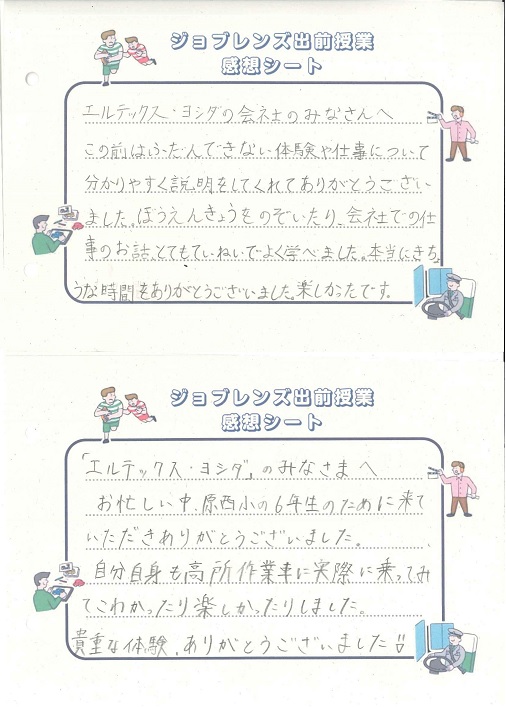 ジョブレンズ出前授業
感想シート
エルテックス・ヨシダの会社のみなさんへ
この前はふだんできない体験や仕事について
分かりやすく説明をしてくれてありがとうござい
ました。ぼうえんきょうをのぞいたり、会社での仕
事のお話、とてもていねいでよく学べました。本当にきちょ
うな時間をありがとうございました。楽しかったです。
ジョブレンズ出前授業
感想シート
「エルテックス・ヨシダ」のみなさまへ
お忙しい中、原西小の6年生のために来て
いただきありがとうございました。
自分自身も高所作業車に実際に乗ってみ
てこわかったり楽しかったりしました。
貴重な体験、ありがとうございました!!